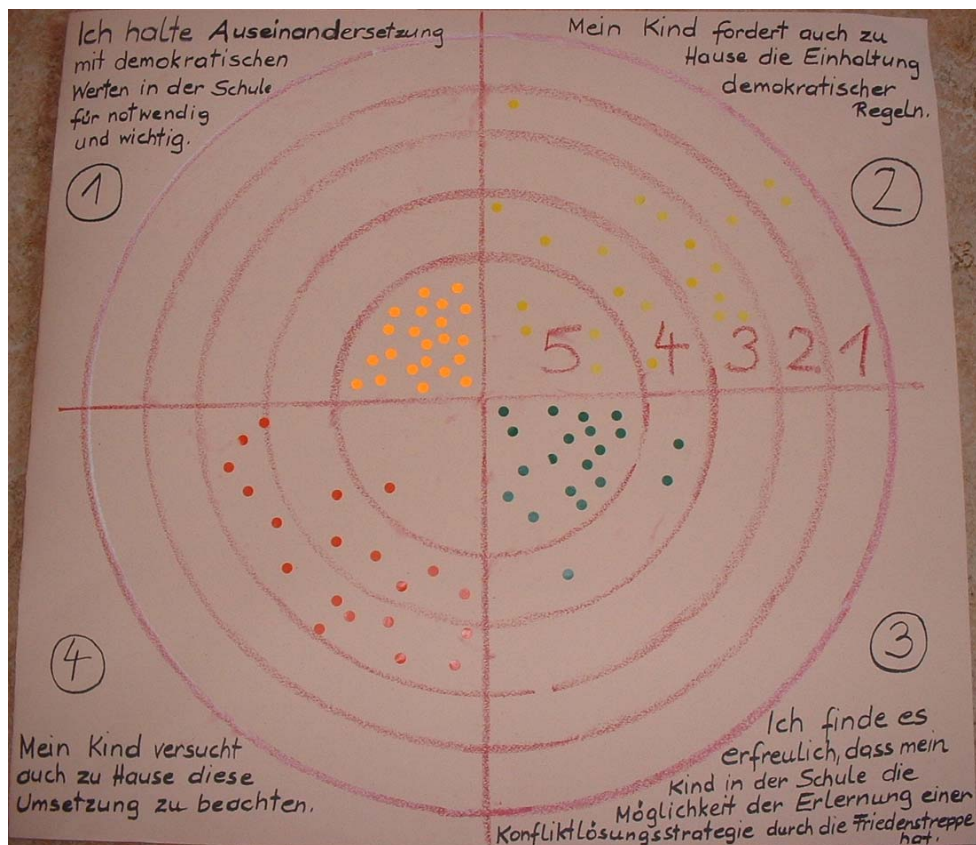 Ich halte Auseinandersetzung
mit demokratischen
Werten in der Schule
für notwendig
und wichtig.
1
Mein Kind fordert auch zu
Hause die Einhaltung
demokratischer
Regeln.
2
5 4 3 2 1
4
3
Mein Kind versucht
auch zu Hause diese
Umsetzung zu beachten.
Ich finde es
erfreulich, dass mein
Kind in der Schule die
Möglichkeit der Erlernung einer
Konfliktlösungsstrategie durch die Friedenstreppe
hat.